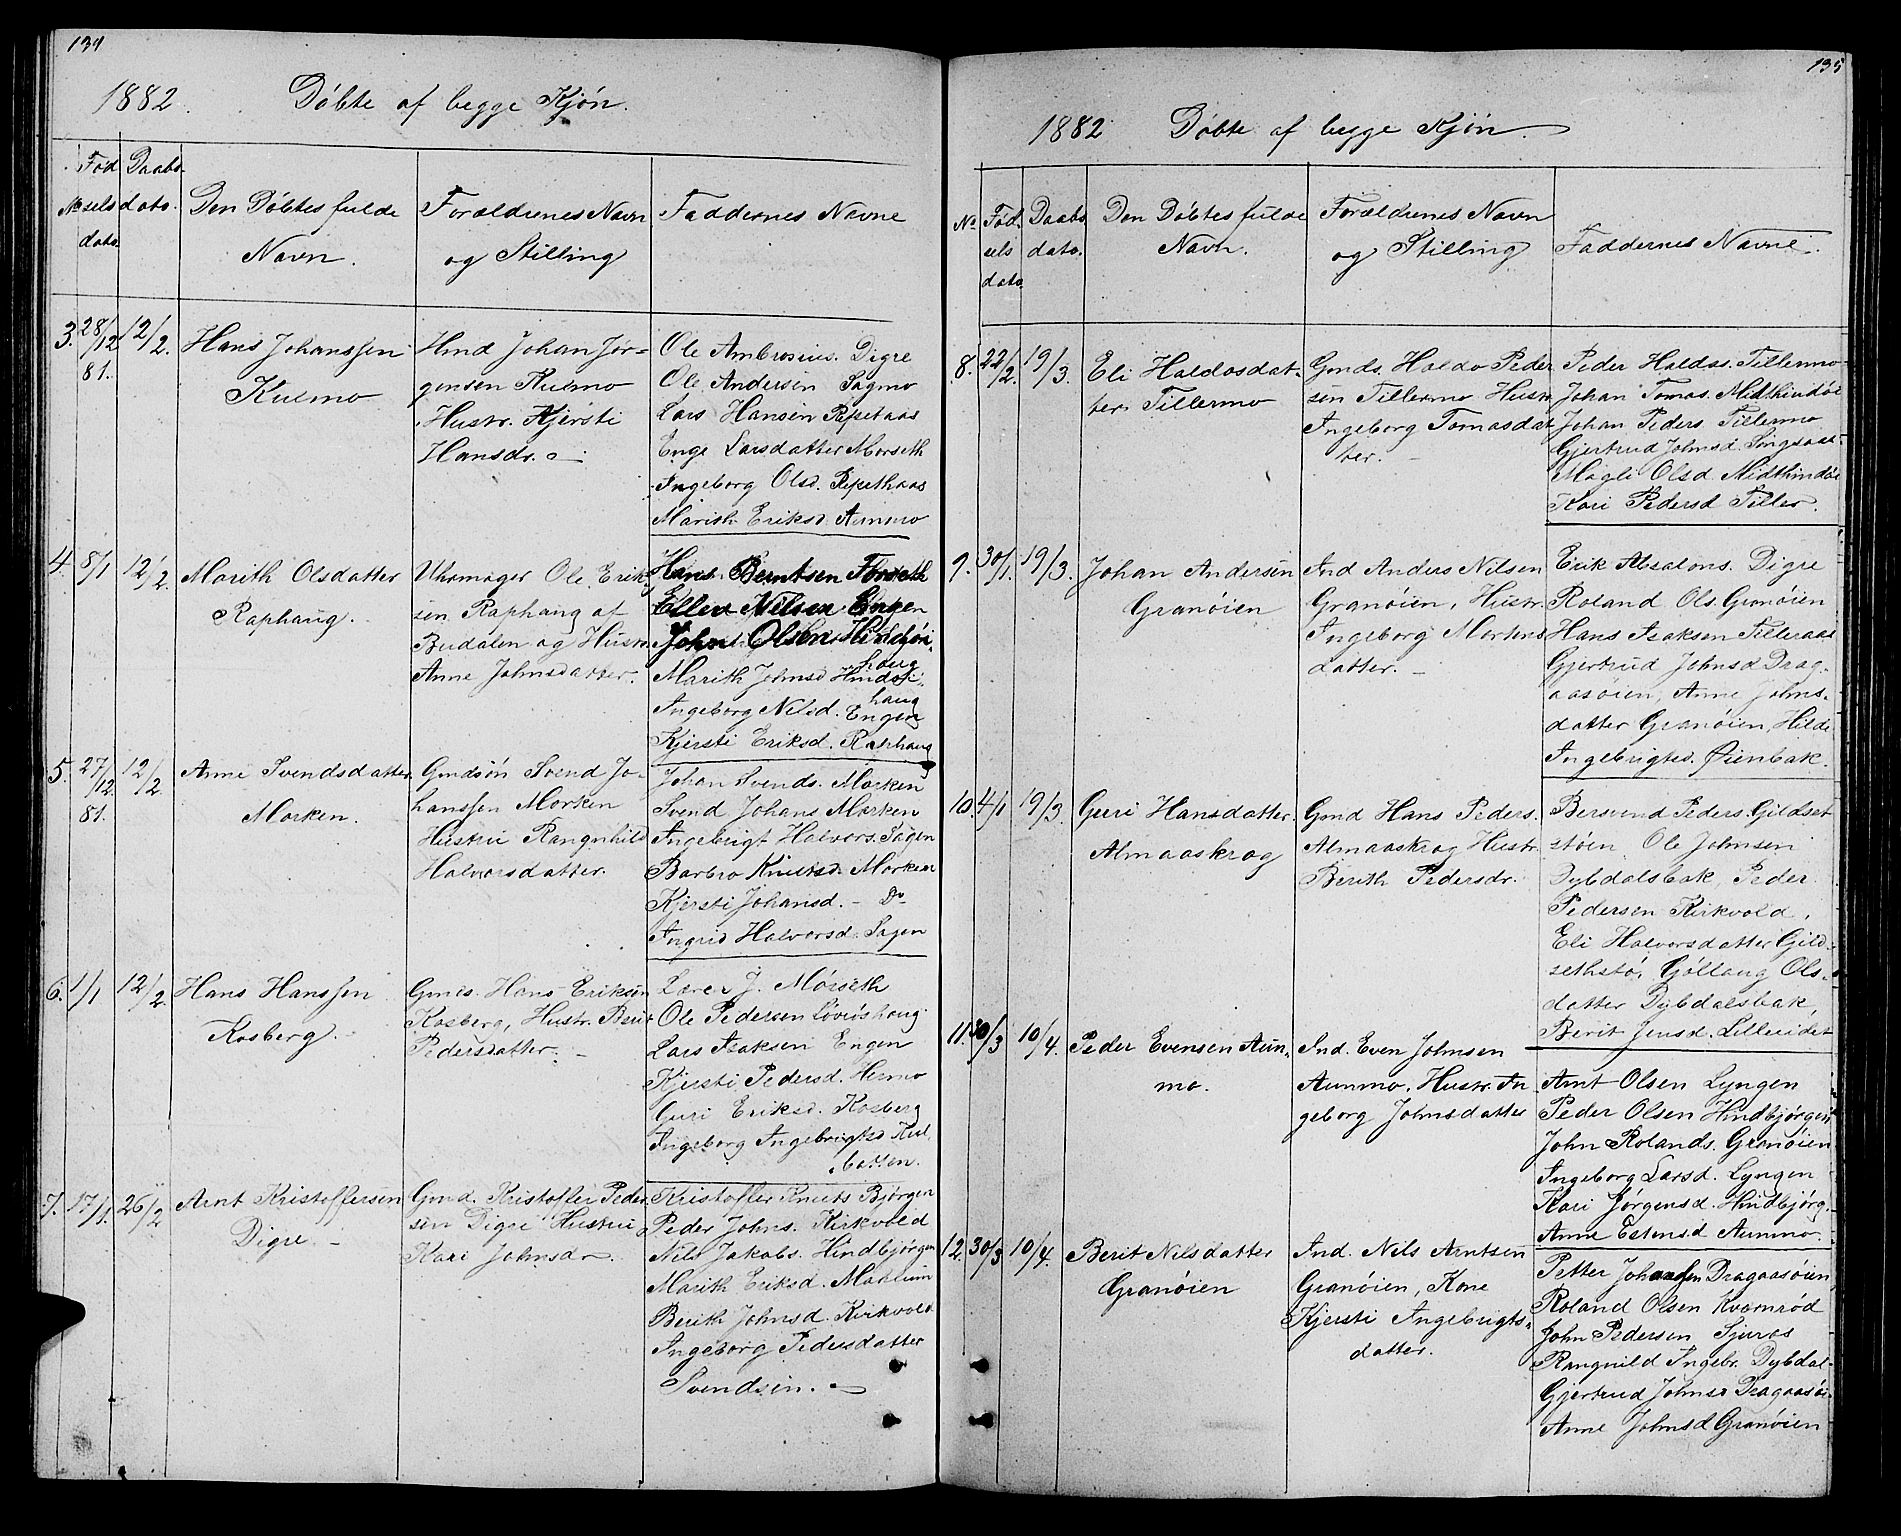 134
1882. Döbte af begge Kjön.
No
Fød
sels
dato.
Daabs
dato.
Den Döbtes fulde
Navn.
Forældrenes Navn
og Stilling
Faddernes Navne
3.
28/12
81.
12/2.
Hans Johanssen
Kulmo
Hmd Johan Jør-
gensen Kulmo
Hustr. Kjersti
Hansdr.
Ole Ambrosius. Digre
Ole Andersen Sagmo
Lars Hansen
Enge Larsdatter Morseth
Ingeborg Olsd.
Marith Eriksd. Aunmo
4.
8/1
12/2
Marith Olsdatter
Raphaug.
Uhrmager Ole Erik-
sen Raphaug af
Budalen og Hustr.
Anne Johnsdatter.
Hans Berntsen Forseth
Ellev Nilsen Engen
John Olsen Hindbjør-
haug
Marith Johnsd
haug
Ingeborg Nilsd. Engen
Kjersti Eriksd. Raphaug
5.
27/12
81.
12/2
Anne Svendsdatter
Morken.
Gmdsøn Svend Jo-
hanssen Morken
Hustru Rangnhild
Halvorsdatter.
Johan Svends. Morken
Svend Johans Morken
Ingebrigt Halvors. Sagen
Barbro Knutsd. Morken
Kjersti Johansd. - Do
Ingrid Halvorsd. Sagen
6.
1/1
12/2
Hans Hanssen
Kosberg.
Gmds. Hans Eriksen
Kosberg, Hustr. Berit
Pedersdatter.
Lars J. Mørseth
Ole Pedersen
Lars Isaksen Engen
Kjersti Pedersd. Hermo
Guri Eriksd. Kosberg
Ingeborg Ingebrigtsd Kul
batten.
7.
17/1.
26/2
Arnt Kristoffersen
Digre.
Gmd. Kristoffer Peder
sen Digre Hustru
Kari Johnsdr.
Kristoffer Knuts Bjørgen
Peder Johns. Kirkvold
Nils Jakobs. Hindbjørgen
Marith Eriksd. Mohlum
Berith Johnsd. Kirkvold
Ingeborg Pedersdatter
Svendsen.
135
1882 Döbte af begge Kjön.
No
Fød
sels
dato
Daabs
dato.
Den Döbtes fulde
Navn.
Forældrenes Navn
og Stilling
Faddernes Navne.
8.
22/2.
19/3.
Eli Haldosdat-
ter Tillermo
Gmds. Haldo Peder
sen Tillermo Hustr
Ingeborg Tomasdat
ter.
Peder Haldos. Tillermo
Johan Tomas. Midthindöe
Johan Peders Tillermo
Gjertrud Johnsd. Singsaas
Magli Olsd. Midthindöe
Kari Pedersd Tiller.
9.
30/1.
19/3.
Johan Andersen
Granöien
Ind Anders Nilsen
Granöien, Hustr.
Ingeborg Mortens
datter.
Erik Absalons. Digre
Roland Ols. Granöien
Hans Isaksen Tilleraas
Gjertrud Johnsd Drag-
aasöien, Anne Johns-
datter Granöien, Hilde
Ingebrigtsd. Øienbak.
10.
4/1
19/3.
Guri Hansdatter.
Almaaskrog
Gmd Hans Peders.
Almaaskrog Hustr.
Berith Pedersdr.
Bersvend Peders. Gildset
stöen Ole Johnsen
Dybdalsbak, Peder
Pedersen Kirkvold,
Eli Halvorsdatter Gild-
sethstö, Göllaug Ols-
datter Dybdalsbak,
Berit Jensd. Lilleeidet
11.
30/3
10/4.
Peder Evensen Aun-
mo.
Ind. Even Johnsen
Aunmo. Hustr. In
geborg Johnsdatter
Arnt Olsen Lyngen
Peder Olsen Hindbjørgen
John Rolands. Granöien
Ingeborg Larsd. Lyngen
Kari Jørgensd. Hindbjörg.
Anne Estensd Aunmo.
12.
30/3
10/4.
Berit Nilsdatter
Granöien
Ind. Nils Arntsen
Granöien, Kone
Kjersti Ingebrigts-
datter.
Petter Johansen Dragaasöien
Roland Olsen Kvamröd
John Pedersen Sjuras
Rangnild Ingebr. Dybdal-
Gjertrud Johnsd Dragaasöi
Anne Johnsd Granöien